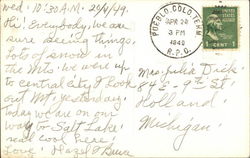 wed: 10:30 A.M. 29/4/49.
Hi! Everybody, we are
sure seeing things,
Lots of snow in
the Mts. we went up
to central City & look
out Mt. yesterday.
today we are on our
way to Salt Lake!
real cool here!
Love! Hazel &
PUEBLO, COLO. TERM.
APR 28
3 PM
1949
R.P.O.
1 CENT 1
Mrs. Julia Dick
84 E - 9th St
Holland
Michigan